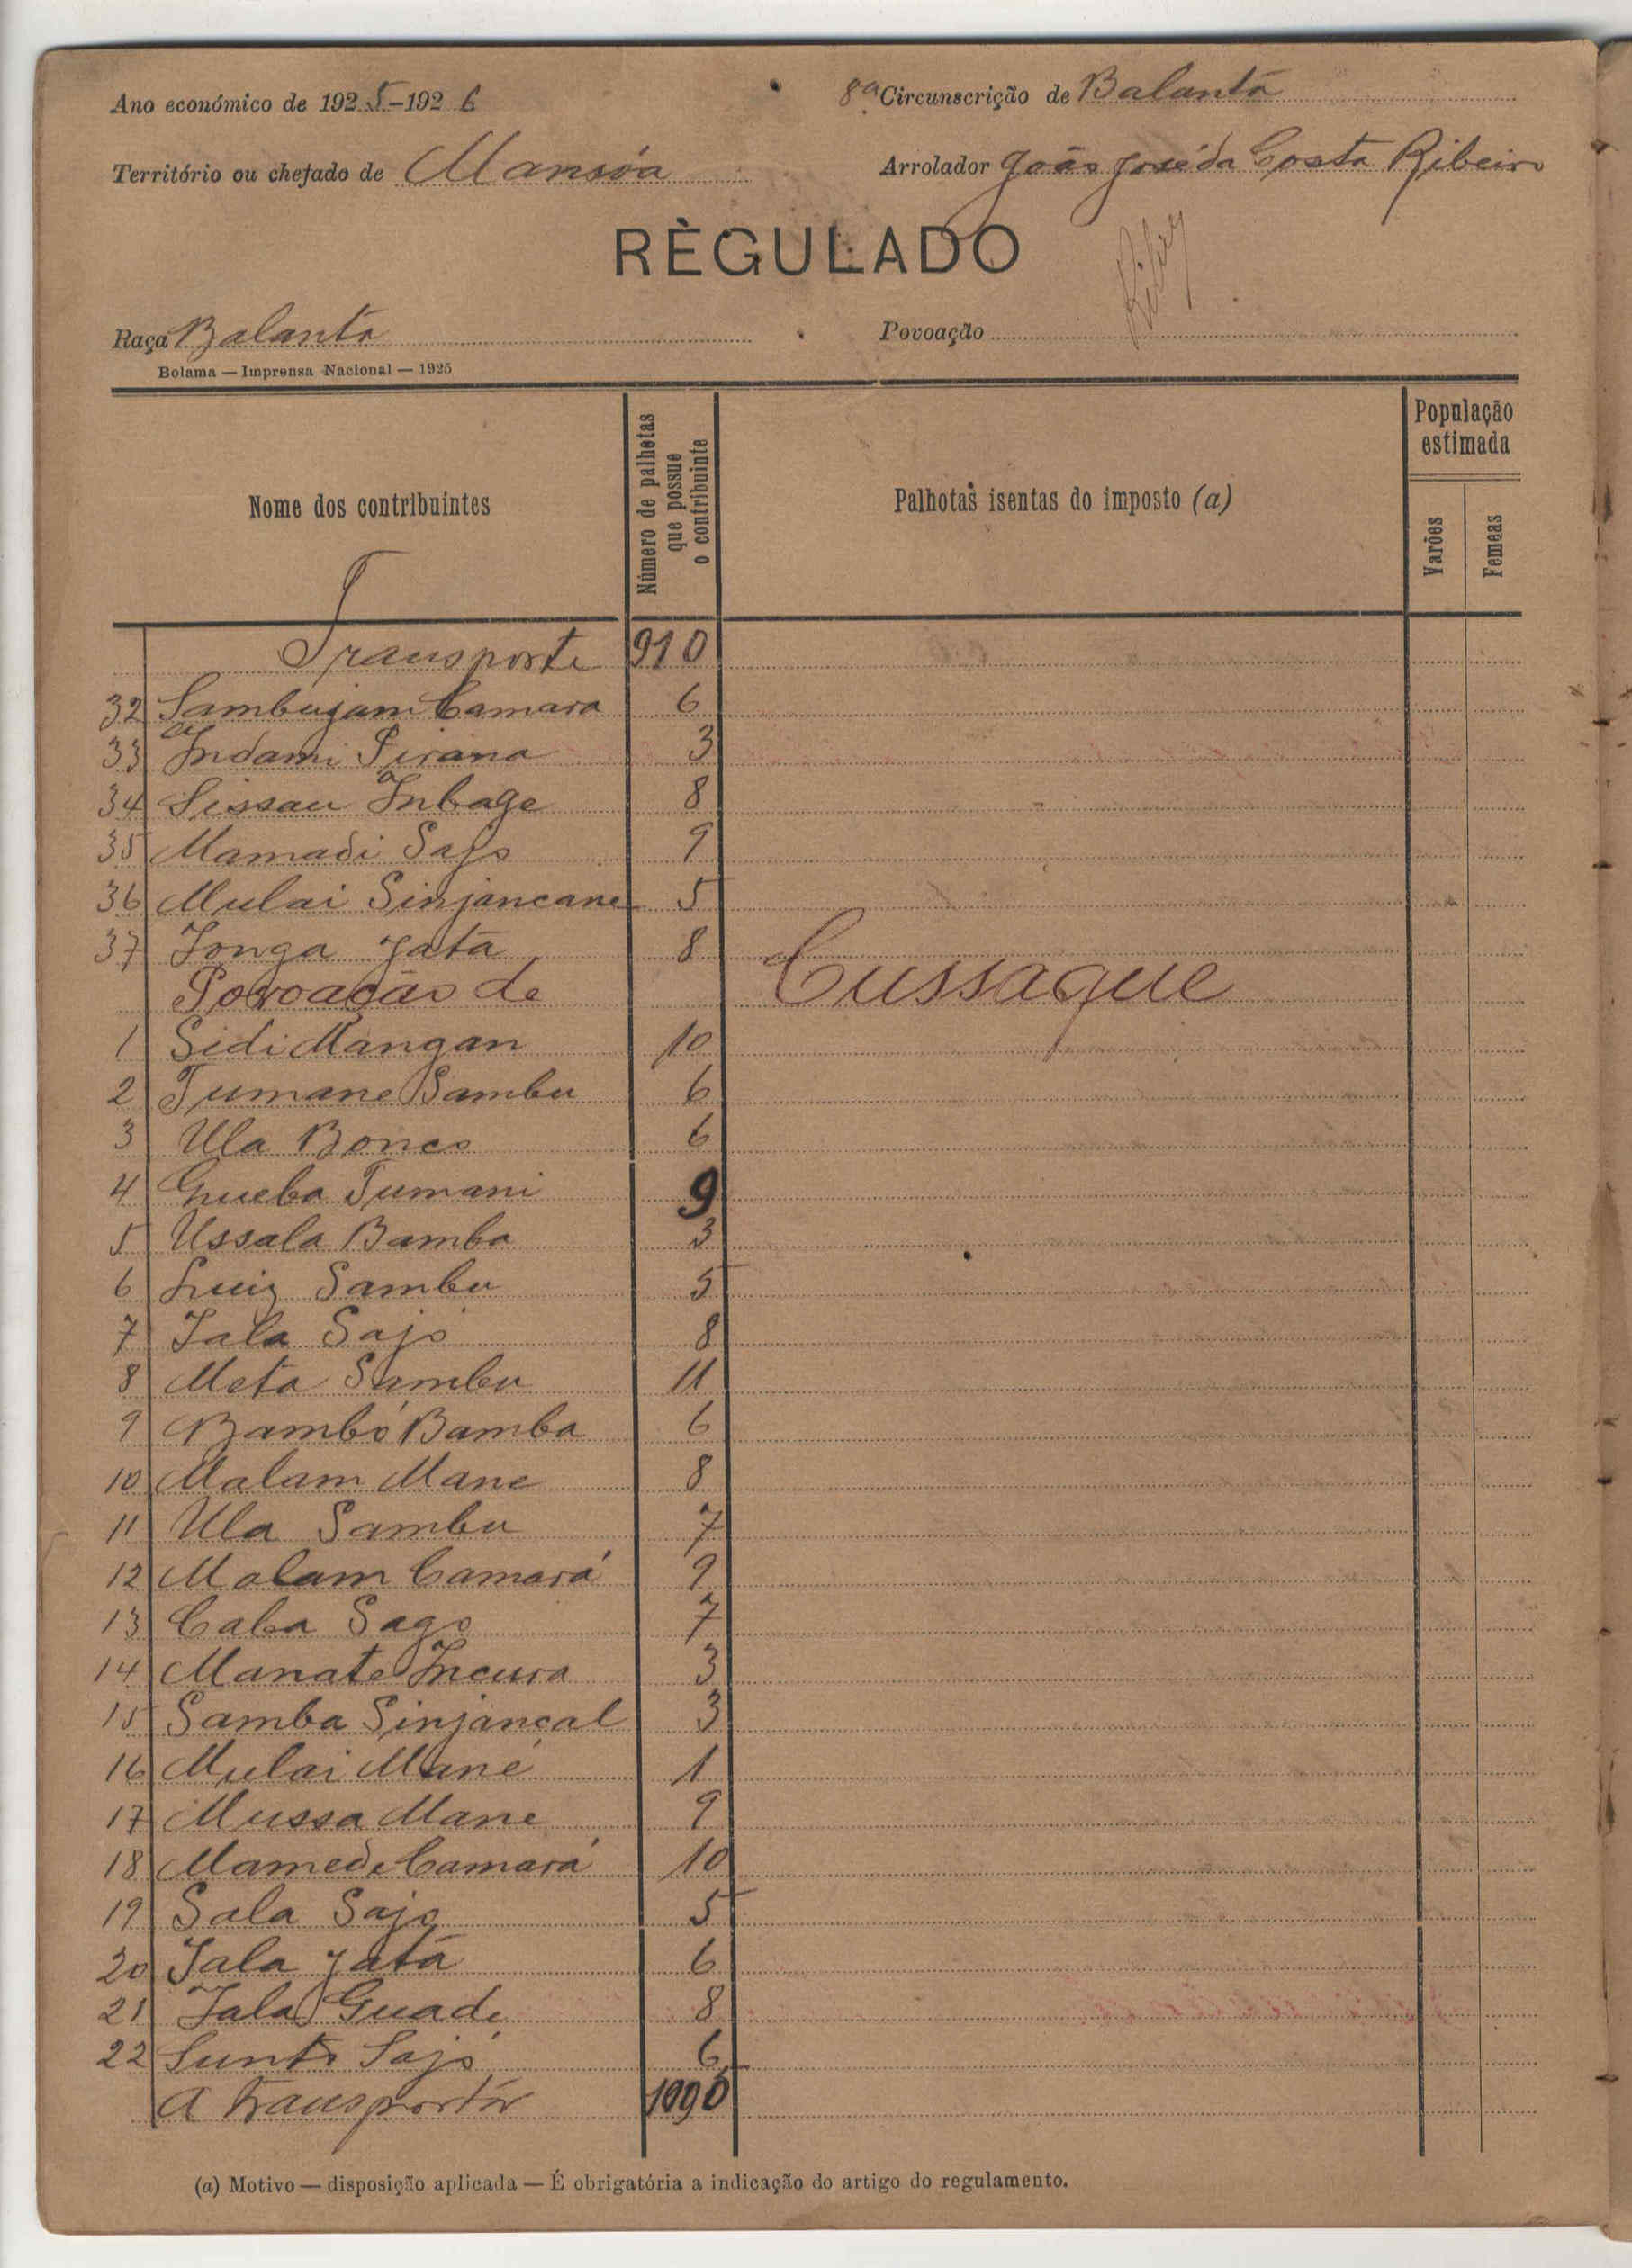 Ano económico de 1925-1926
8ª Circunscrição de Balanta
Território ou chefado de Mansôa
Arrolador João José da Costa Ribeiro
RÈGULADO
Raça Balanta
Povoação
Bolama — Imprensa Nacional — 1925
Nome dos contribuintes
Número de palhotas que possue o contribuinte
Palhotas isentas do imposto (a)
População estimada
Varões
Femeas
Transporte 910
32 Sambujam Camara 6
33 Indami Pirana 3
34 Sissau Inbage 8
35 Mamadi Sajo 9
36 Mulai Sinjancane 5
37 Jonga Jatá 8
Povoação de Cussaque
1 Sidi Mangan 10
2 Tumane Sambu 6
3 Ula Bonco 6
4 Gueba Tumani 9
5 Ussala Bamba 3
6 Luiz Sambu 5
7 Jala Sajó 8
8 Meta Sambu 11
9 Bambó Bamba 6
10 Malam Mane 8
11 Ula Sambu 7
12 Malam Camará 9
13 Caba Sago 7
14 Manate Incura 3
15 Samba Sinjancal 3
16 Mulai Mané 1
17 Mussa Mane 9
18 Mamede Camará 10
19 Sala Sajo 5
20 Jala Jatá 6
21 Jala Guade 8
22 Sunto Sajó 6
A transportár 1090
(a) Motivo — disposição aplicada — É obrigatória a indicação do artigo do regulamento.